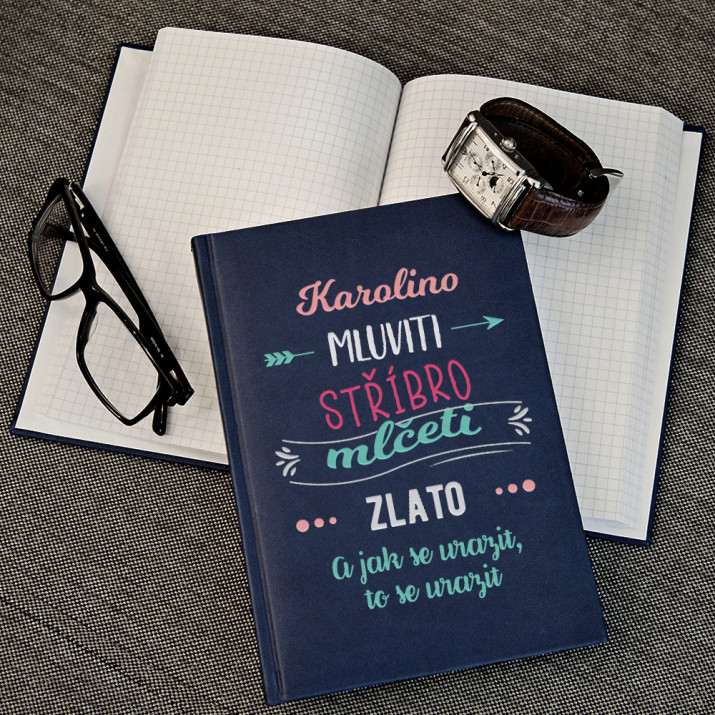 Karolino
MLUVITI
STŘÍBRO
mlčeti
ZLATO
A jak se urazit,
to se urazit